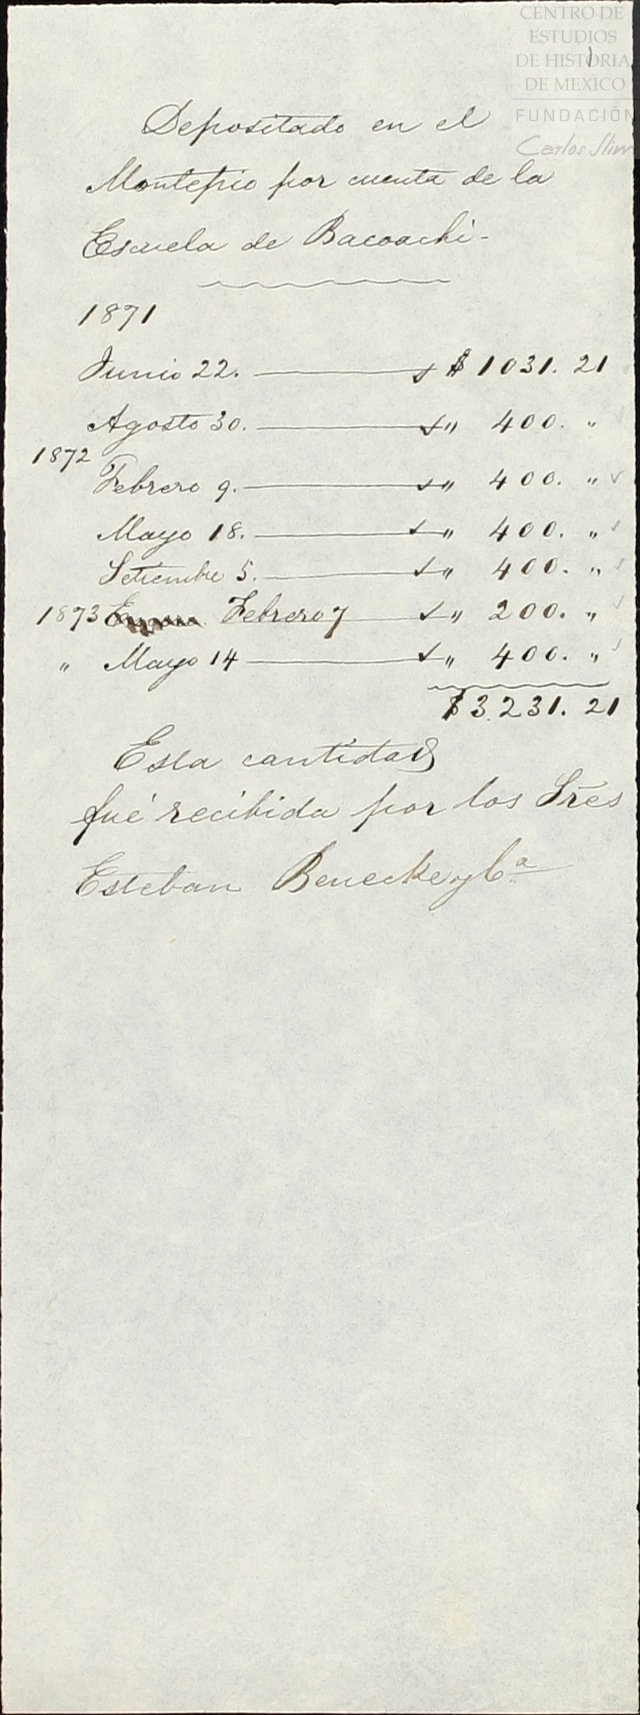 CENTRO DE
ESTUDIOS
DE HISTORIA
DE MEXICO
FUNDACIÓN
Carlos Slim
Depositado en el
Montepio por cuenta de la
Escuela de Bacoachi-
1871
Junio 22. $ 1031. 21
Agosto 30. " 400. "
1872
Febrero 9. " 400. "
Mayo 18. " 400. "
Setiembre 5. " 400. "
1873 Febrero 7 " 200. "
" Mayo 14 " 400. "
$3.231. 21
Esta cantidad
fué recibida por los Sres
Esteban Benecke y Ca